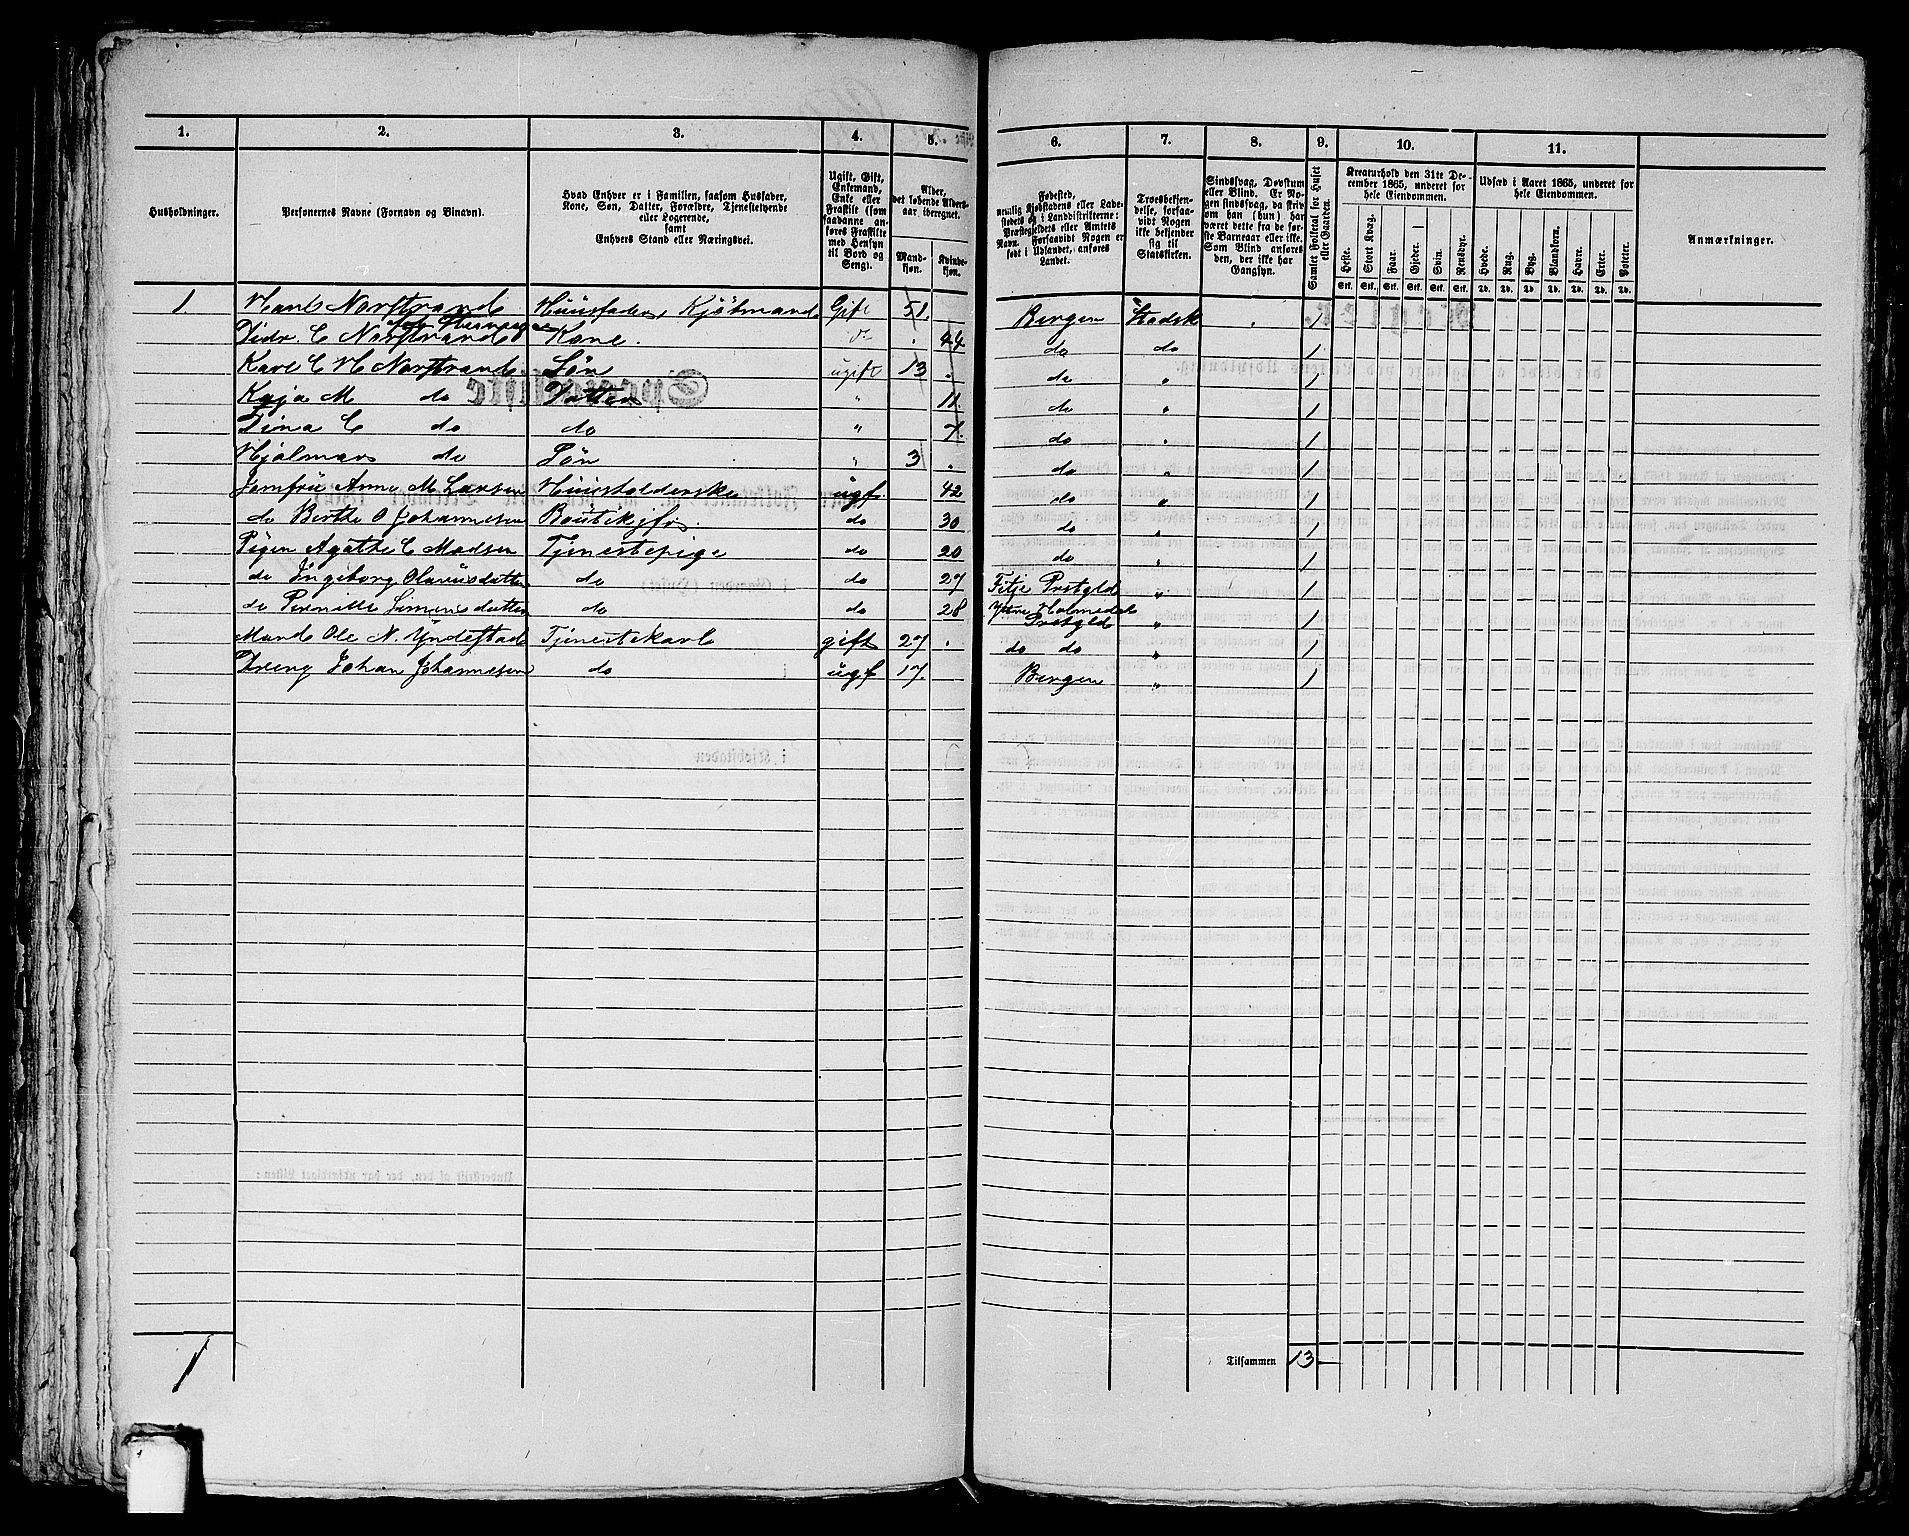 1. 2. 3. 4. 5. 6. 7. 8. 9. 10. 11.
Husholdninger.
Personernes Navne (Fornavn og Binavn).
Hvad Enhver er i Familien, saasom Husfader,
Kone, Søn, Datter, Forældre, Tjenestetyende
eller Logerende,
samt
Enhvers Stand eller Næringsvei.
Ugift, Gift,
Enkemand,
Enke eller
Fraskilt (som
saadanne an-
føres Fraskilte
med Hensyn
til Bord og
Seng).
Alder,
det løbende Alders-
aar iberegnet.
Mand-
kjøn.
Kvinde-
kjøn.
Fødested,
nemlig Kjøbstadens eller Lade-
stedets og i Landdistrikterne:
Præstegjeldets eller Amtets
Navn. Forsaavidt Nogen er
født i Udlandet, anføres
Landet.
Troesbekjen-
delse, forsaa-
vidt Nogen
ikke bekjender
sig til
Statskirken.
Sindssvag, Døvstum
eller Blind. Er No-
gen sindssvag, da skriv
om han (hun) har
været dette fra de før-
ste Barneaar eller ikke.
Som Blind anføres
den, der ikke har
Gangsyn.
Samlet Folketal for Huset
eller Gaarden.
Kreaturhold den 31te De-
cember 1865, underet for
hele Eiendommen.
Heste. Stort Kvæg. Faar. Gjeder. Svin. Rensdyr.
Stk. Stk. Stk. Stk. Stk. Stk.
Udsæd i Aaret 1865, underet for
hele Eiendommen.
Hvede. Rug. Byg. Blandkorn. Havre. Erter. Poteter.
Td. Td. Td. Td. Td. Td. Td.
Anmærkninger.
1 Hans Norstrand Huusfader, Kjøbmand Gift 51. Bergen Stadsk 1
Didr C Norstrand Kone. do . 44 do do 1
Karl C H Norstrand Søn ugift 13 . do " 1
Kaja M do Datter " 11 do " 1
Dina C do do " 7. do " 1
Hjalmar do Søn " 3 . do " 1
Jomfru Anne M. Larsen Huusholderske ugf. 42 do " 1
do Berthe O Johannesen Boutikjfr. do 30. do " 1
Pigen Agathe C Madsen Tjenestepige do 20 do " 1
do Ingeborg Olavusdatter do do 27 Fitje Prstgld " 1
do Pernille Simensdatter do do 28 Ytre Holmedal Prstgld " 1
Mand Ole N. Yndestad Tjenestekarl gift 27 . do do " 1
Dreng Johan Johannesen do ugf 17. Bergen " 1
1
Tilsammen 13